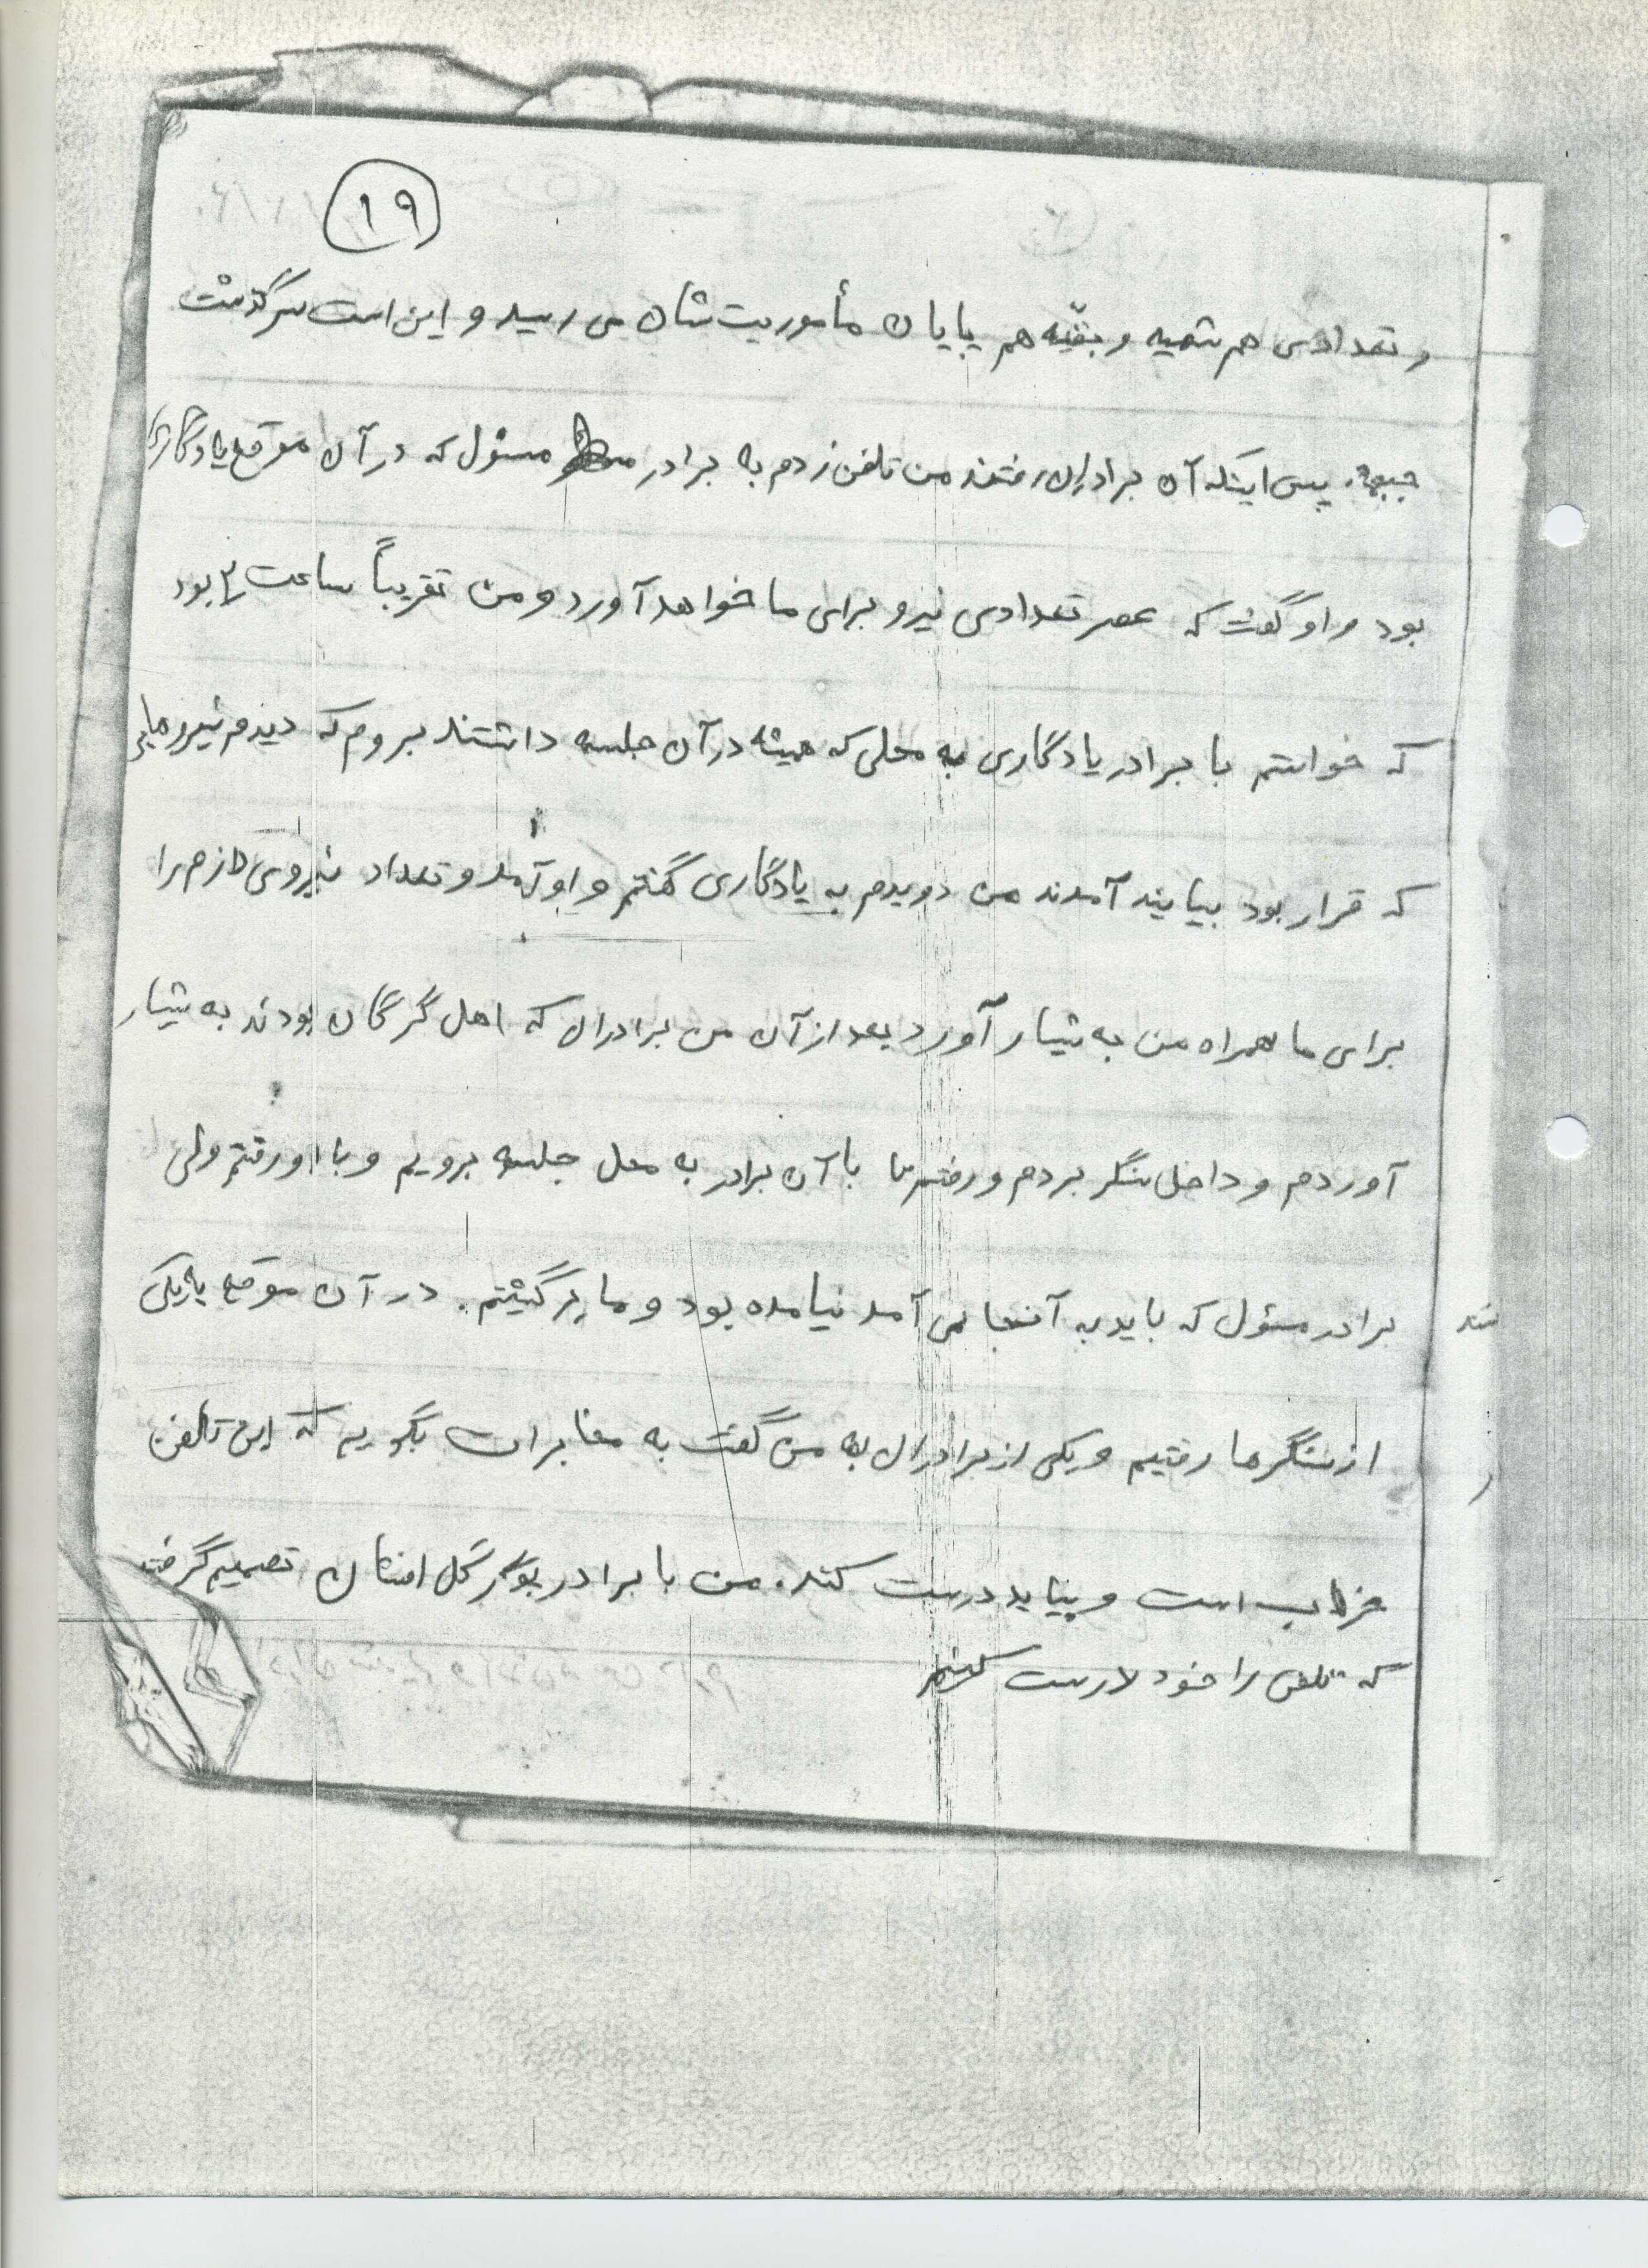 ۱۹
و تعدادی هم شهید و بقیّه هم پایان مأموریت شان می رسید و این است سرگذشت
جبهه. پس اینکه آن برادران رفتند من تلفن زدم به برادر مسئول که در آن موقع یادگاری
بود و او گفت که عصر تعدادی نیرو برای ما خواهد آورد و من تقریباً ساعت ۲ بود
که خواستم با برادر یادگاری به محلی که همیشه در آن جلسه داشتند بروم که دیدم نیروهایی
که قرار بود بیایند آمدند من دویدم به یادگاری گفتم و او آمد و تعداد نیروی لازم را
برای ما همراه من به شیار آورد بعد از آن من برادران که اهل گرگان بودند به شیار
آوردم و داخل سنگر بردم و رفتم تا با آن برادر به محل جلسه برویم و با او رفتم ولی
برادر مسئول که باید به آنجا می آمد نیامده بود و ما برگشتیم. در آن موقع به یکی
از سنگرها رفتیم و یکی از برادران به من گفت به مخابرات بگویم که این تلفن
خراب است و بیاید درست کند. من با برادر تصمیم گرفت
که تلفن را خود درست کنیم